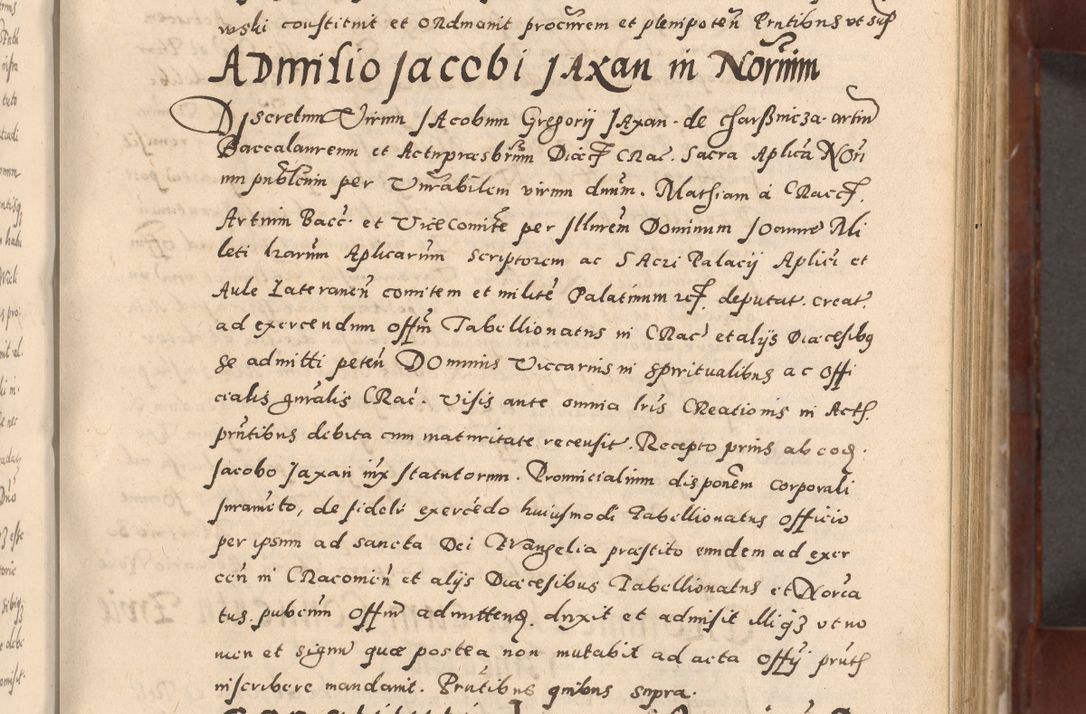 wski constituit et ordinavit procurem et plenipoten Prntibus ut sup
Admisio Jacobi Jaxan in Norium
Discretum Virum Jacobum Gregorij Jaxan de Charßnicza artium
Baccalaureum et Actu præsbrum Diæc Crac. Sacra Aplica Non
um publicum per Virabilem virum dnum. Mathiam a Cracc
Artium Bacc. et Vice Comite per Illurem Dominum Joanne Mi
leti lrarum Aplicarum scriptorem ac Sacri Palacij Aplici et
Aule Lateranen comitem et milite Palatinum deputat. creat
ad exercendum offm Tabellionatus in Crac et alijs Diæcesibus
se admitti peten Dominus Viccarius in spiritualibus ac offi
cialis gnralis Crac. Visis ante omnia lris Creationis in Acth
prntibus debita cum maturitate recensit. Recepto prius ab eod.
Jacobo Jaxan iux statutorum. Provincialium disponem corporali
iuramto, de fideli exercedo huiusmodi Tabellionatus officio
per ipsum ad sancta Dei Evangelia præstito eundem ad exer
cen in Cracovien et alijs Diæcesibus Tabellionatus et Noria
tus pubcum offm admitten. duxit et admisit illiq3 ut no
men et signu quæ postea non mutabit ad acta offij prnth
inscribere mandavit. Prntibus quibus supra.